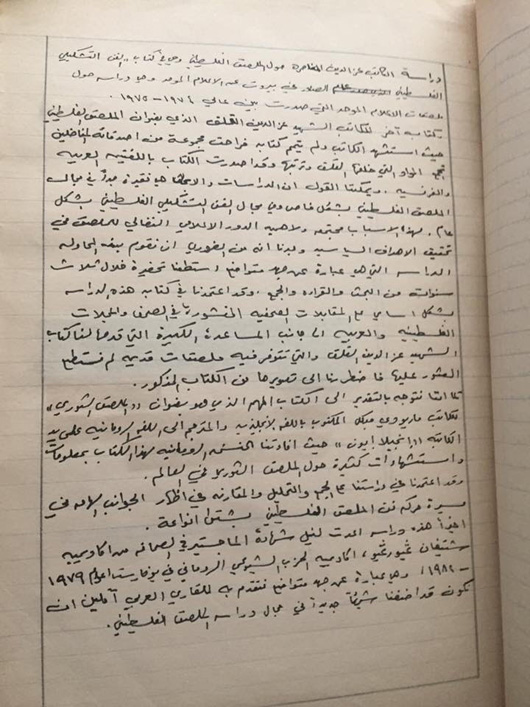 دراسة الكاتب عز الدين المناصرة حول الملصق الفلسطيني وهي في كتاب "الفن التشكيلي
الفلسطيني" الصادر في بيروت عن الاعلام الموحد وهي دراسة حول
ملصقات الاعلام الموحد التي صدرت بين عامي ١٩٧٤ - ١٩٧٥.
وكتاب آخر للكاتب الشهيد عز الدين القلق الذي بعنوان الملصق الفلسطيني
حيث استشهد الكاتب ولم يتم كتابه فراحت مجموعة من اصدقائه المناضلين
تجمع المواد التي خلفها القلق وترتبها وقد صدرت الكتاب باللغتين العربية
والفرنسية. ويمكننا القول ان الدراسات والابحاث فقيرة جداً في مجال
الملصق الفلسطيني بشكل خاص وفي مجال الفن التشكيلي الفلسطيني بشكل
عام. لهذه الاسباب مجتمعة ولأهمية الدور الاعلامي النضالي للملصق في
تحقيق الاهداف السياسية وجدنا انه من الضروري ان نقوم بهذه المحاولة
الدراسة التي هي عبارة عن جهد متواضع استطعنا تحضيره خلال ثلاث
سنوات من البحث والقراءة والجمع. وقد اعتمدنا في كتابه هذه الدراسة
بشكل اساسي على المقابلات الصحفية المنشورة في الصحف والمجلات
الفلسطينية والعربية الى جانب المساعدة الكبيرة التي قدمها لنا كتاب
الشهيد عز الدين القلق والتي تتوفر فيه ملصقات قديمة لم نستطع
العثور عليها فاضطرنا الى تصويرها من الكتاب المذكور.
كما اننا نتوجه بالتقدير الى الكتاب المهم الذي هو بعنوان "الملصق الثوري"
للكاتب ماريووي ميكل المكتوب باللغة الانجليزية والمترجم الى اللغة الرومانية على يد
الكاتبة "انجيلا ايون" حيث افادتنا النسخة الرومانية لهذا الكتاب بمعلومات
واستشهادات كثيرة حول الملصق الثوري في العالم.
وقد اعتمدنا في دراستنا على الجمع والتحليل والمقارنة في اظهار الجوانب الهامة في
مسيرة حركة فن الملصق الفلسطيني بشتى انواعه.
اخيراً هذه دراسة اعدت لنيل شهادة الماجستير في الصحافة من اكاديمية
شتيفان غيورغيو، اكاديمية الحزب الشيوعي الروماني في بوخارست اعوام ١٩٧٩
- ١٩٨٢، وهي عبارة عن جهد متواضع نتقدم به للقارئ العربي آملين ان
نكون قد اضفنا شيئاً جديداً في مجال دراسة الملصق الفلسطيني.